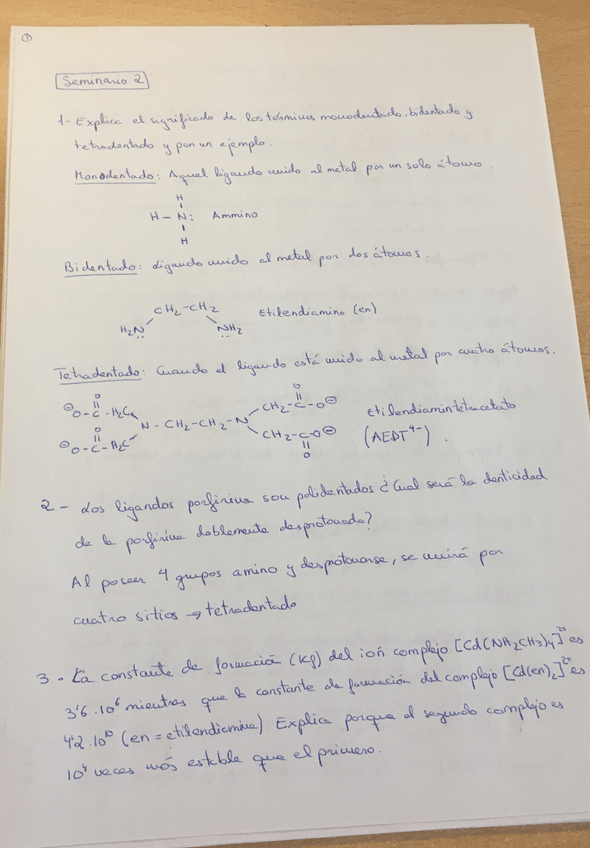 1
Seminario 2
1- Explica el significado de los términos monodentado, bidentado y
tetradentado y pon un ejemplo.
Monodentado: Aquel ligando unido al metal por un solo átomo.
H
H - N: Ammino
H
Bidentado: Ligando unido al metal por dos átomos.
CH2 - CH2
H2N NH2 Etilendiamina (en).
Tetradentado: Cuando el ligando está unido al metal por cuatro átomos.
O O
⊖O-C-H2C CH2-C-O⊖
N-CH2-CH2-N Etilendiamintetracetato
O
⊖O-C-H2C CH2-C-O⊖ (AEDT4-).
O
2- Los ligandos porfirina son polidentados ¿Cual será la denticidad
de la porfirina doblemente desprotonada?
Al poseer 4 grupos amino y desprotonarse, se unirá por
cuatro sitios → tetradentado
3- La constante de formació (Kf) del ión complejo [Cd(NH2CH3)4]2+ es
3'6·10⁶ mientras que la constante de formación del complejo [Cd(en)2]2+ es
4'2·10¹⁰ (en = etilendiamina). Explica porque el segundo complejo es
10⁴ veces más estable que el primero.